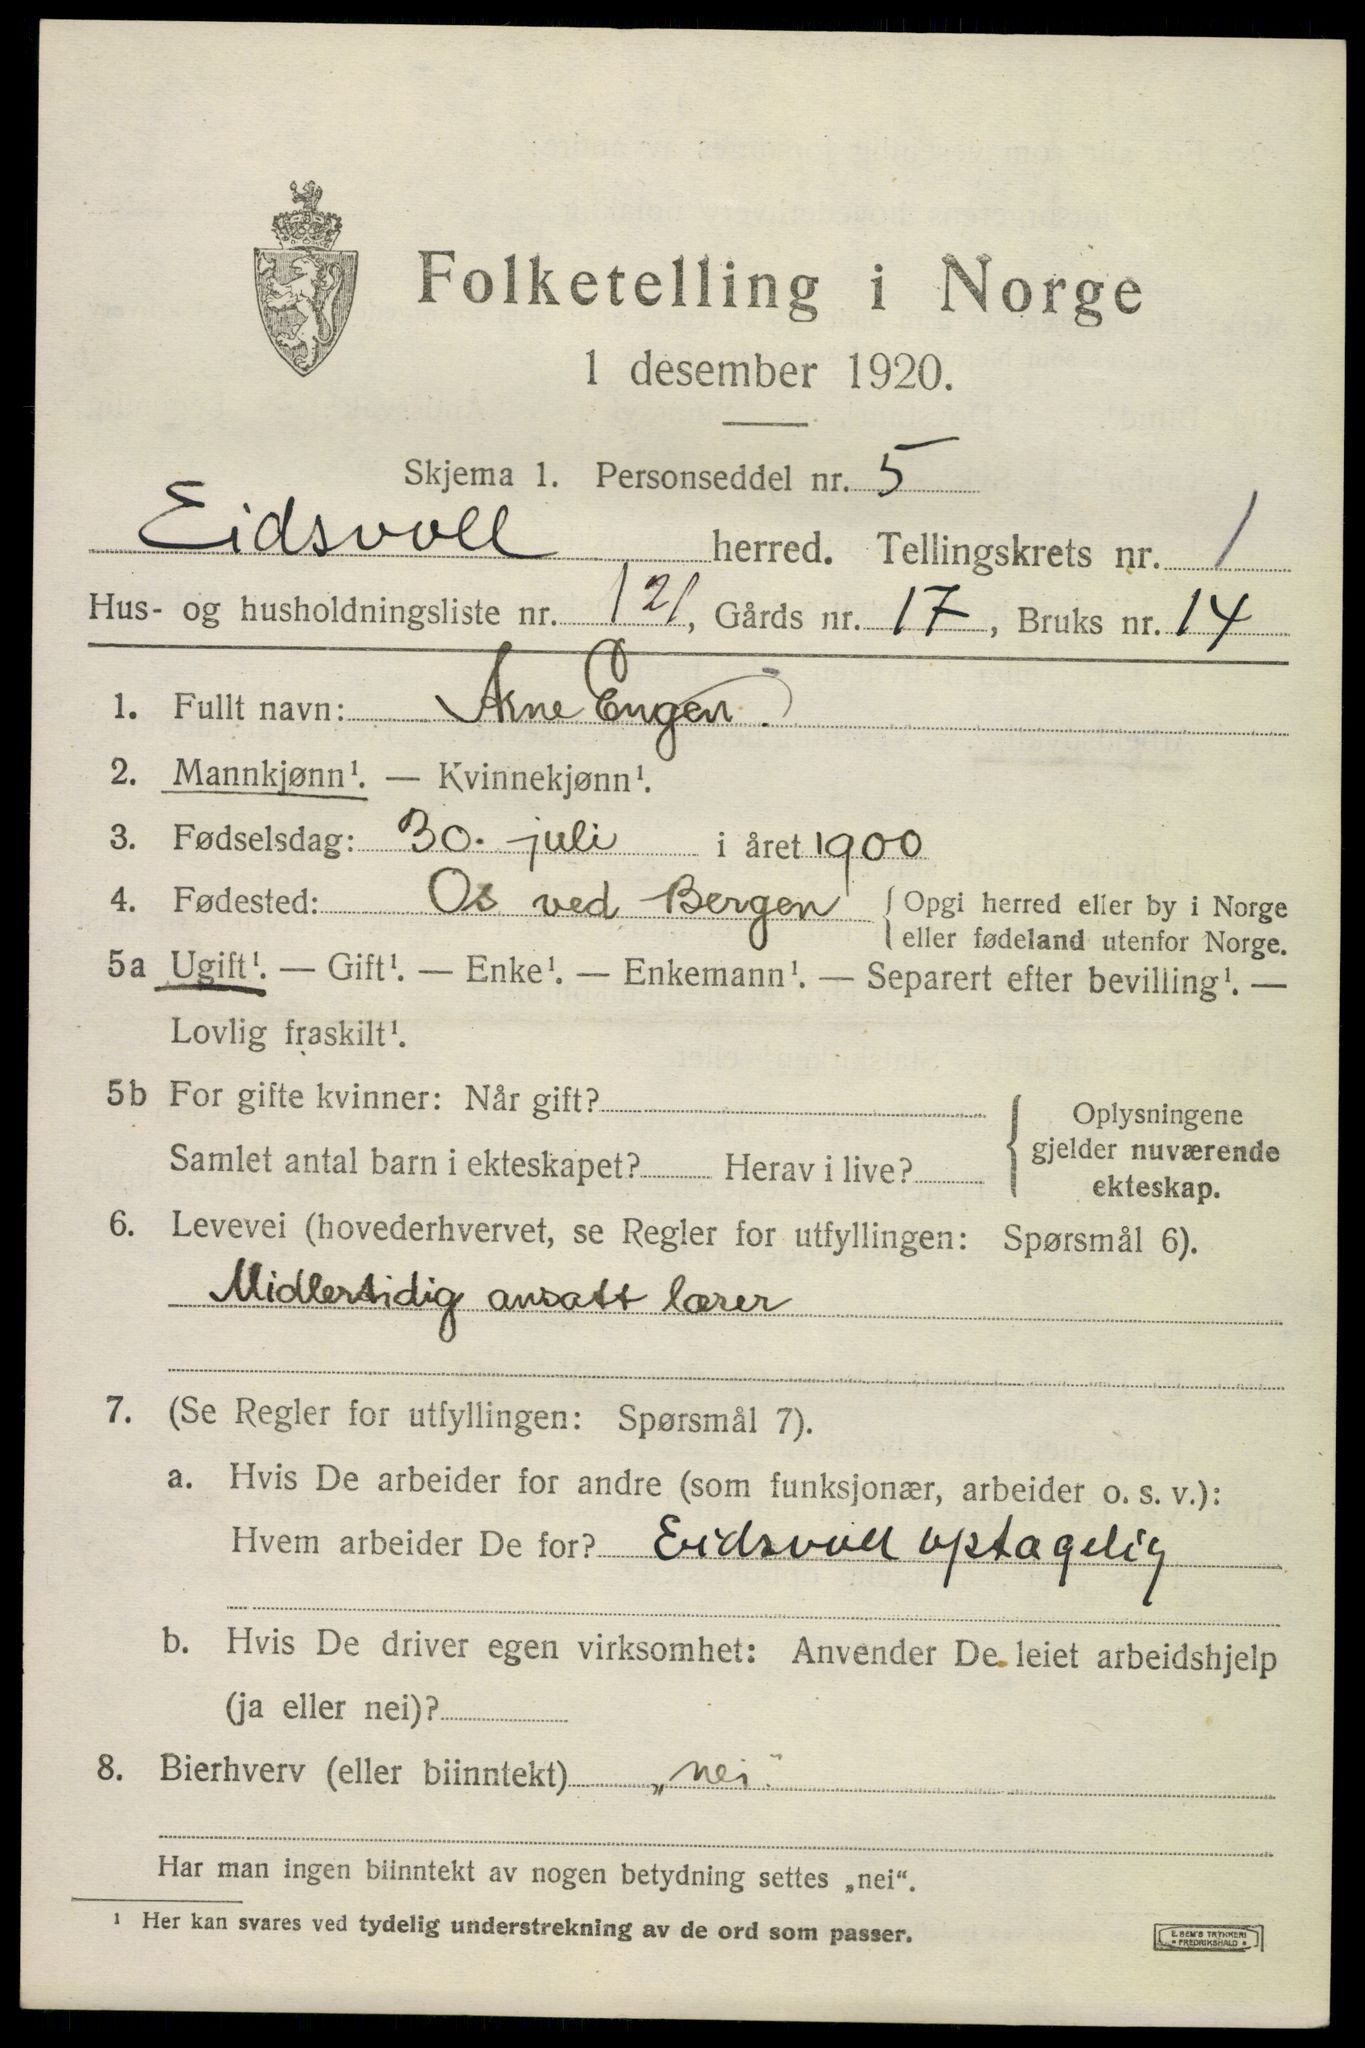 Folketelling i Norge
1 desember 1920.
Skjema 1. Personseddel nr. 5
Eidsvoll herred. Tellingskrets nr. 1
Hus- og husholdningsliste nr. 121, Gårds nr. 17, Bruks nr. 14
1. Fullt navn: Arne Engen.
2. Mannkjønn¹. — Kvinnekjønn¹.
3. Fødselsdag: 30. juli i året 1900
4. Fødested: Os ved Bergen { Opgi herred eller by i Norge
eller fødeland utenfor Norge.
5a Ugift¹. — Gift¹. — Enke¹. — Enkemann¹. — Separert efter bevilling¹. —
Lovlig fraskilt¹.
5b For gifte kvinner: Når gift?
Samlet antal barn i ekteskapet? Herav i live?
{ Oplysningene
gjelder nuværende
ekteskap.
6. Levevei (hovederhvervet, se Regler for utfyllingen: Spørsmål 6).
Midlertidig ansatt lærer
7. (Se Regler for utfyllingen: Spørsmål 7).
a. Hvis De arbeider for andre (som funksjonær, arbeider o. s. v.):
Hvem arbeider De for? Eidsvoll optagelig
b. Hvis De driver egen virksomhet: Anvender De leiet arbeidshjelp
(ja eller nei)?
8. Bierhverv (eller biinntekt) „nei"
Har man ingen biinntekt av nogen betydning settes „nei“.
¹ Her kan svares ved tydelig understrekning av de ord som passer.
E. SEM'S TRYKKERI
* FREDRIKSHALD *